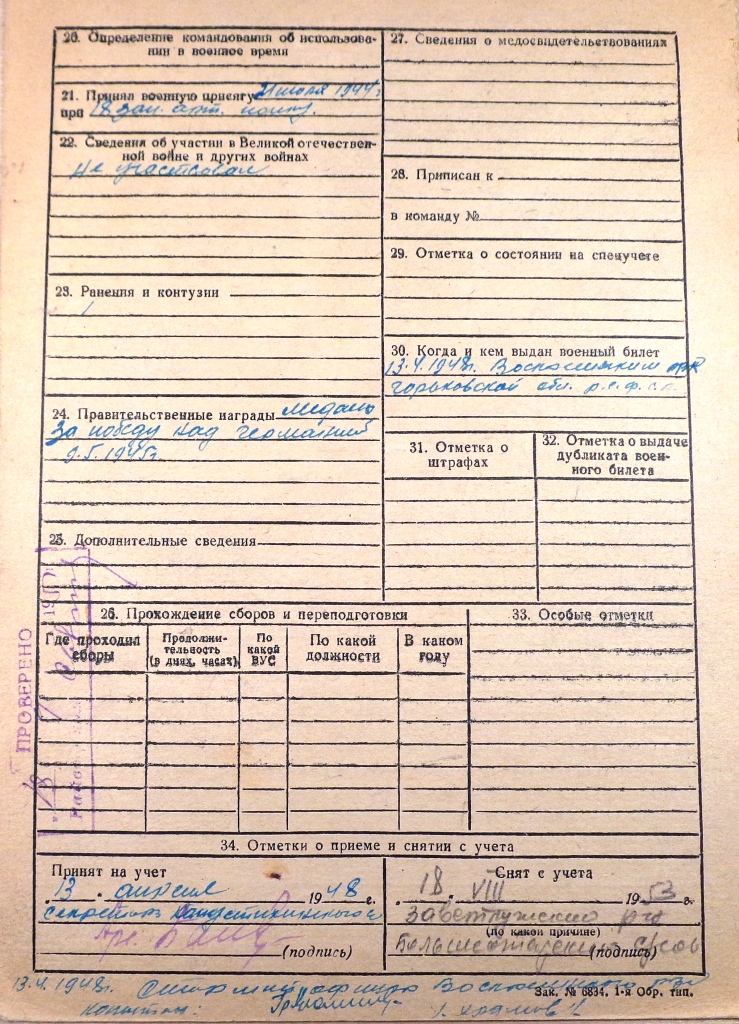 20. Определение командования об использова-
нии в военное время
21. Принял военную присягу 21 июля 1944 г
при 18 зап. арт. полку.
22. Сведения об участии в Великой отечествен-
ной войне и других войнах
Не участвовал
23. Ранения и контузии
24. Правительственные награды медаль
За победу над германией
9.5.1945г.
25. Дополнительные сведения
26. Прохождение сборов и переподготовки
Где проходил
сборы
Продолжи-
тельность
(в днях, часах)
По
какой
ВУС
По какой
должности
В каком
году
27. Сведения о медосвидетельствованиях
28. Приписан к
в команду №
29. Отметка о состоянии на спецучете
30. Когда и кем выдан военный билет
13.4.1948г. Воскресенским РВК
горьковской обл. р.с.ф.с.р.
31. Отметка о
штрафах
32. Отметка о выдаче
дубликата воен-
ного билета
33. Особые отметки
34. Отметки о приеме и снятии с учета
Принят на учет
13 апреля 1948 г.
(подпись)
Снят с учета
18. VIII 1953 г.
(по какой причине)
(подпись)
ПРОВЕРЕНО
13.4.1948г.
Зак. № 6834. 1-я Обр. тип.